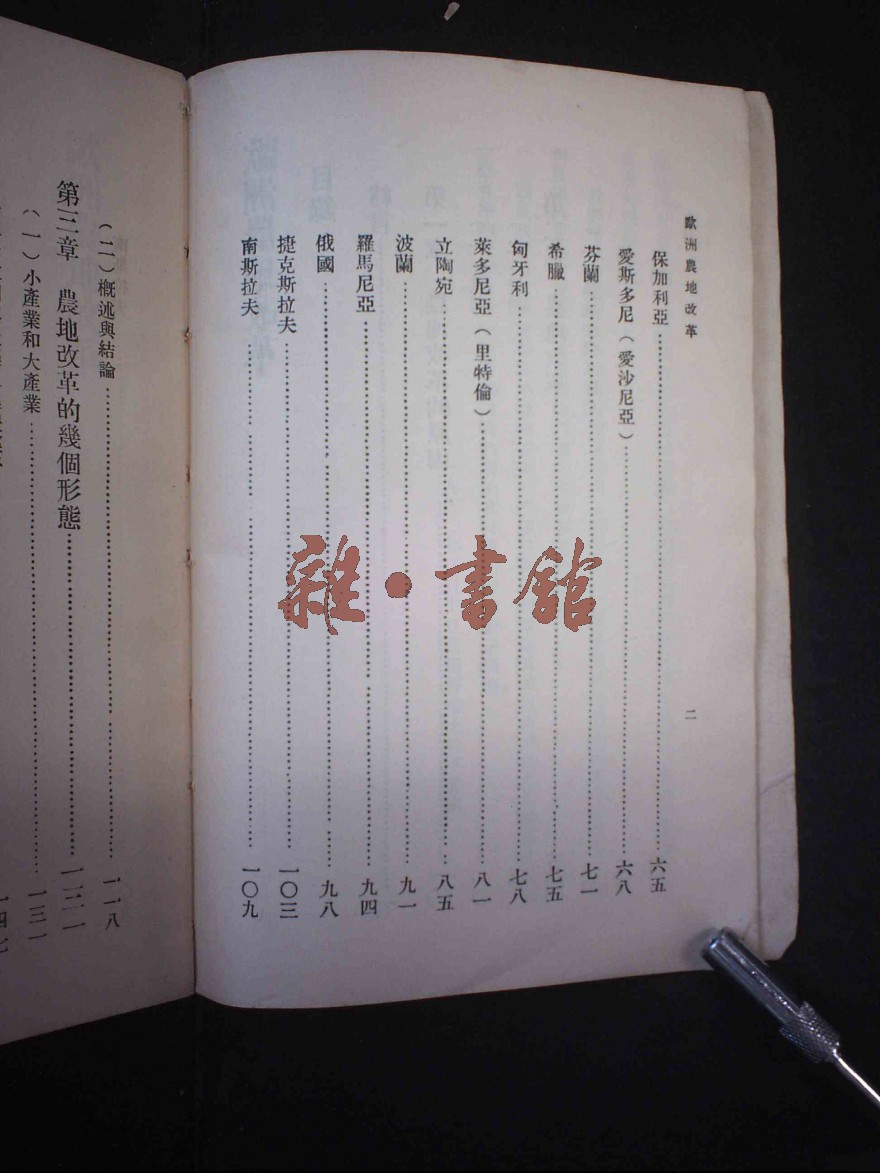 歐洲農地改革
二
保加利亞……六五
愛斯多尼（愛沙尼亞）……六八
芬蘭……七一
希臘……七五
匈牙利……七八
萊多尼亞（里特倫）……八一
立陶宛……八五
波蘭……九一
羅馬尼亞……九四
俄國……九八
捷克斯拉夫……一〇三
南斯拉夫……一〇九
（二）概述與結論……一一八
第三章　農地改革的幾個形態……一三一
（一）小產業和大產業……一三一
一四七
雜·書館